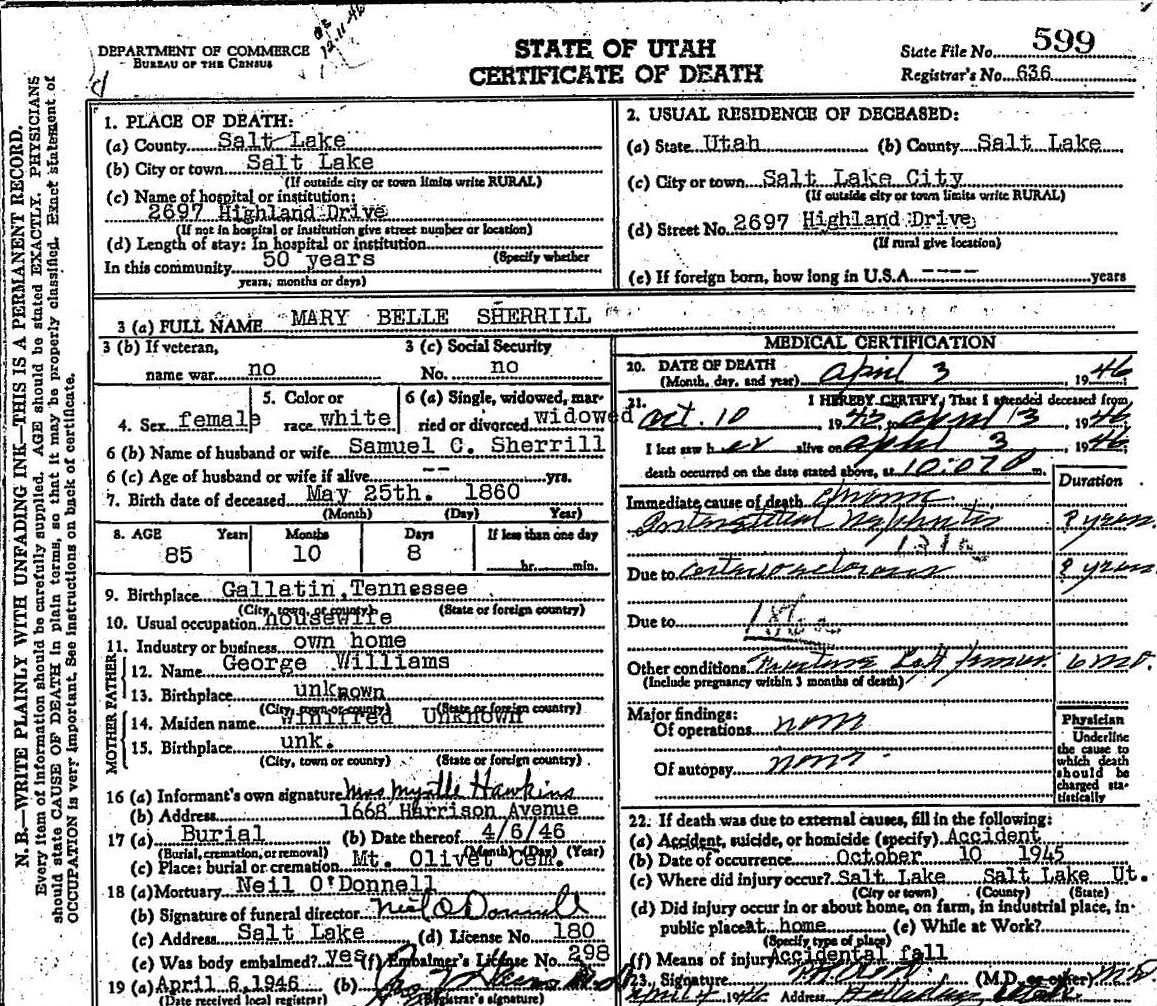 DEPARTMENT OF COMMERCE
BUREAU OF THE CENSUS
STATE OF UTAH
CERTIFICATE OF DEATH
State File No. 599
Registrar's No. 636
N. B.—WRITE PLAINLY WITH UNFADING INK—THIS IS A PERMANENT RECORD.
Every item of information should be carefully supplied. AGE should be stated EXACTLY. PHYSICIANS
should state CAUSE OF DEATH in plain terms, so that it may be properly classified. Exact statement of
OCCUPATION is very important. See instructions on back of certificate.
1. PLACE OF DEATH:
(a) County Salt Lake
(b) City or town Salt Lake
(If outside city or town limits write RURAL)
(c) Name of hospital or institution:
2697 Highland Drive
(If not in hospital or institution give street number or location)
(d) Length of stay: In hospital or institution
(Specify whether
In this community 50 years
years, months or days)
2. USUAL RESIDENCE OF DECEASED:
(a) State Utah (b) County Salt Lake
(c) City or town Salt Lake City
(If outside city or town limits write RURAL)
(d) Street No. 2697 Highland Drive
(If rural give location)
(e) If foreign born, how long in U.S.A. ---- years
3 (a) FULL NAME MARY BELLE SHERRILL
3 (b) If veteran,
name war no
3 (c) Social Security
No. no
4. Sex female
5. Color or
race white
6 (a) Single, widowed, mar-
ried or divorced widowed
6 (b) Name of husband or wife Samuel C. Sherrill
6 (c) Age of husband or wife if alive -- yrs.
7. Birth date of deceased May 25th. 1860
(Month) (Day) Year)
8. AGE Years Months Days If less than one day
85 10 8 hr. min.
9. Birthplace Gallatin, Tennessee
(City, town, or county) (State or foreign country)
10. Usual occupation housewife
11. Industry or business own home
FATHER
12. Name George Williams
13. Birthplace unknown
(City, town or county) (State or foreign country)
MOTHER
14. Maiden name Winifred Unknown
15. Birthplace unk.
(City, town or county) (State or foreign country)
16 (a) Informant's own signature Mrs Myrtle Hawkins
(b) Address 1668 Harrison Avenue
17 (a) Burial (b) Date thereof 4/6/46
(Burial, cremation, or removal) (Month) (Day) (Year)
(c) Place: burial or cremation Mt. Olivet Cem.
18 (a) Mortuary Neil O'Donnell
(b) Signature of funeral director Neil O'Donnell
(c) Address Salt Lake (d) License No. 180
(e) Was body embalmed? yes (f) Embalmer's License No. 298
19 (a) April 6, 1946 (b)
(Date received local registrar) (Registrar's signature)
MEDICAL CERTIFICATION
20. DATE OF DEATH
(Month, day, and year) April 3, 1946;
21. I HEREBY CERTIFY, That I attended deceased from
Oct. 10, 19 to April 3, 1946
I last saw her alive on April 3, 1946
death occurred on the date stated above, at 10:07 P m.
Duration
Immediate cause of death Chronic
Interstitial Nephritis ? years
131a
Due to arteriosclerosis ? years
Due to
186a
Other conditions Fracture left femur 6 mo.
(Include pregnancy within 3 months of death)
Major findings:
Of operations none
Of autopsy none
Physician
Underline
the cause to
which death
should be
charged sta-
tistically
22. If death was due to external causes, fill in the following:
(a) Accident, suicide, or homicide (specify) Accident
(b) Date of occurrence October 10 1945
(c) Where did injury occur? Salt Lake Salt Lake Ut.
(City or town) (County) (State)
(d) Did injury occur in or about home, on farm, in industrial place, in
public place at home (e) While at Work?
(Specify type of place)
(f) Means of injury Accidental fall
23. Signature (M.D. or other) MD
1946 Address Holladay, Utah